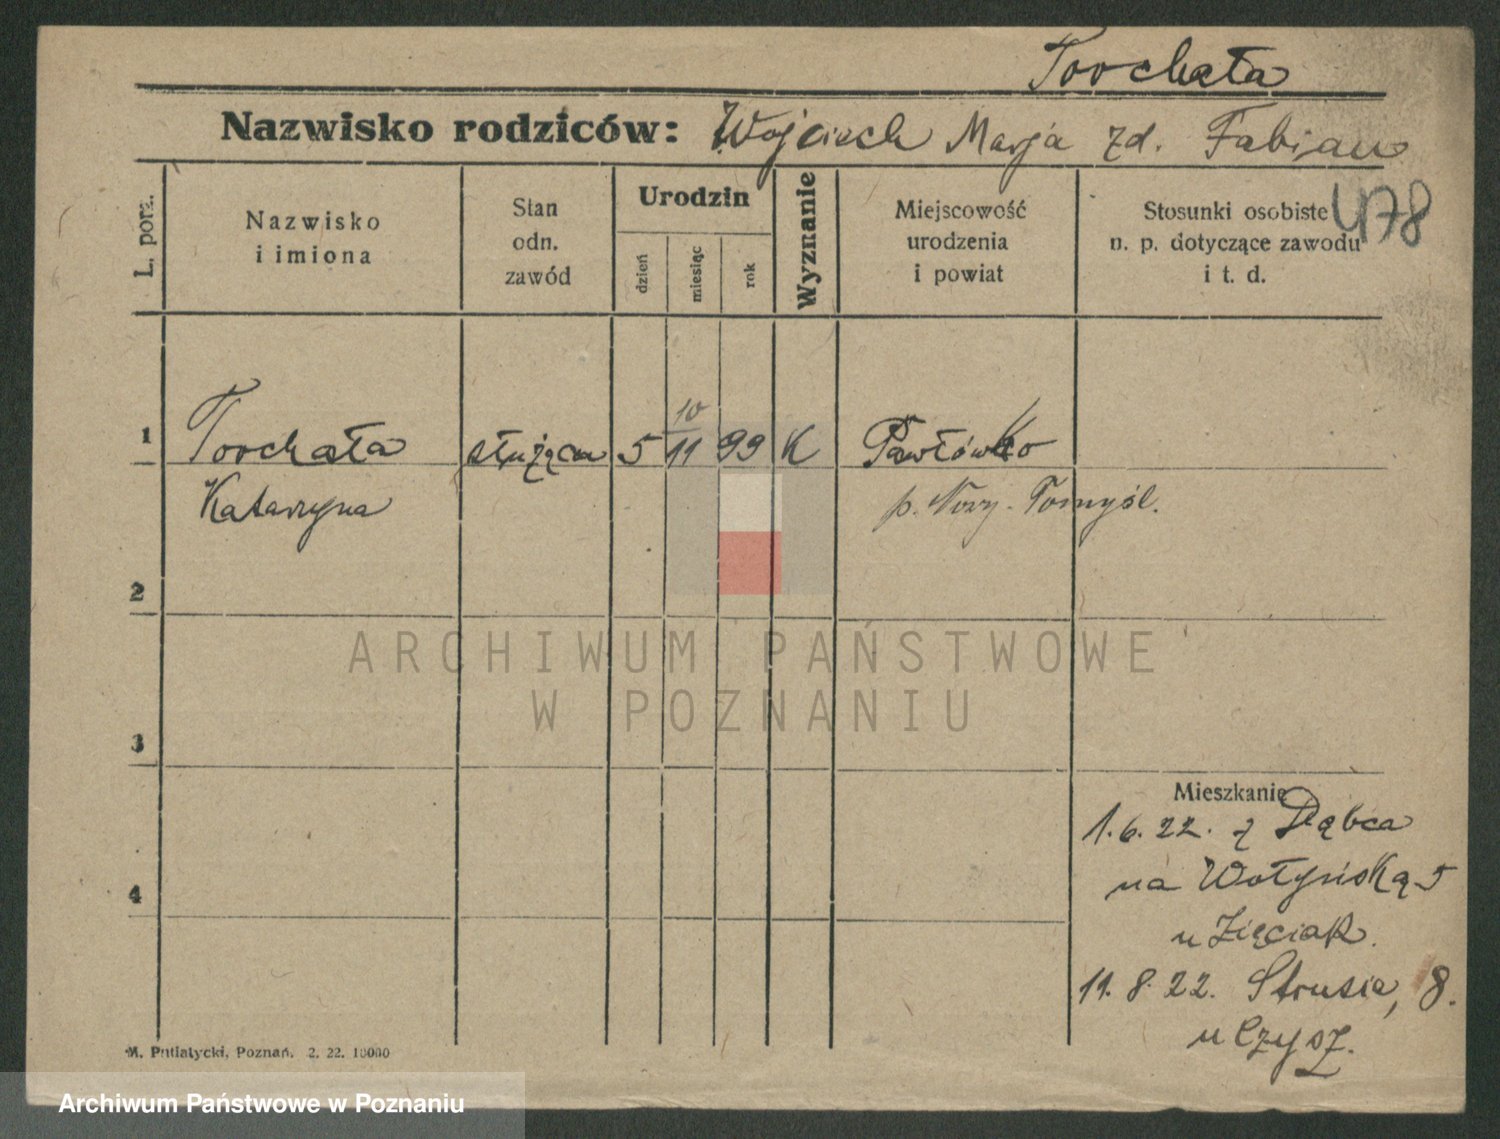 Torchała
Nazwisko rodziców: Wojciech Marja zd. Fabian
L. porz.
Nazwisko
i imiona
Stan
odn.
zawód
Urodzin
dzień
miesiąc
rok
Wyznanie
Miejscowość
urodzenia
i powiat
Stosunki osobiste
n. p. dotyczące zawodu
i t. d.
478
10
1 Torchała służąca 5 11 99 K Pawłówko
Katarzyna p. Nowy-Tomyśl.
2
3
4
Mieszkanie
1.6.22. z Dębca
na Wołyńską 5
u Zięciak.
11.8.22. Strusia, 8.
u Czysz.
M. Putiatycki, Poznań. 2. 22. 10000
ARCHIWUM PAŃSTWOWE
W POZNANIU
Archiwum Państwowe w Poznaniu